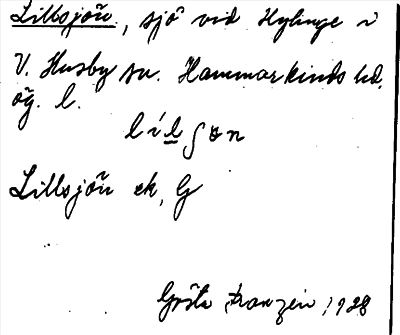 Lillsjön, sjö vid Hylinge i
V. Husby sn. Hammarkinds hd.
ög. l.
lílʃɵn
Lillsjön ek, G
Gösta Franzén, 1928